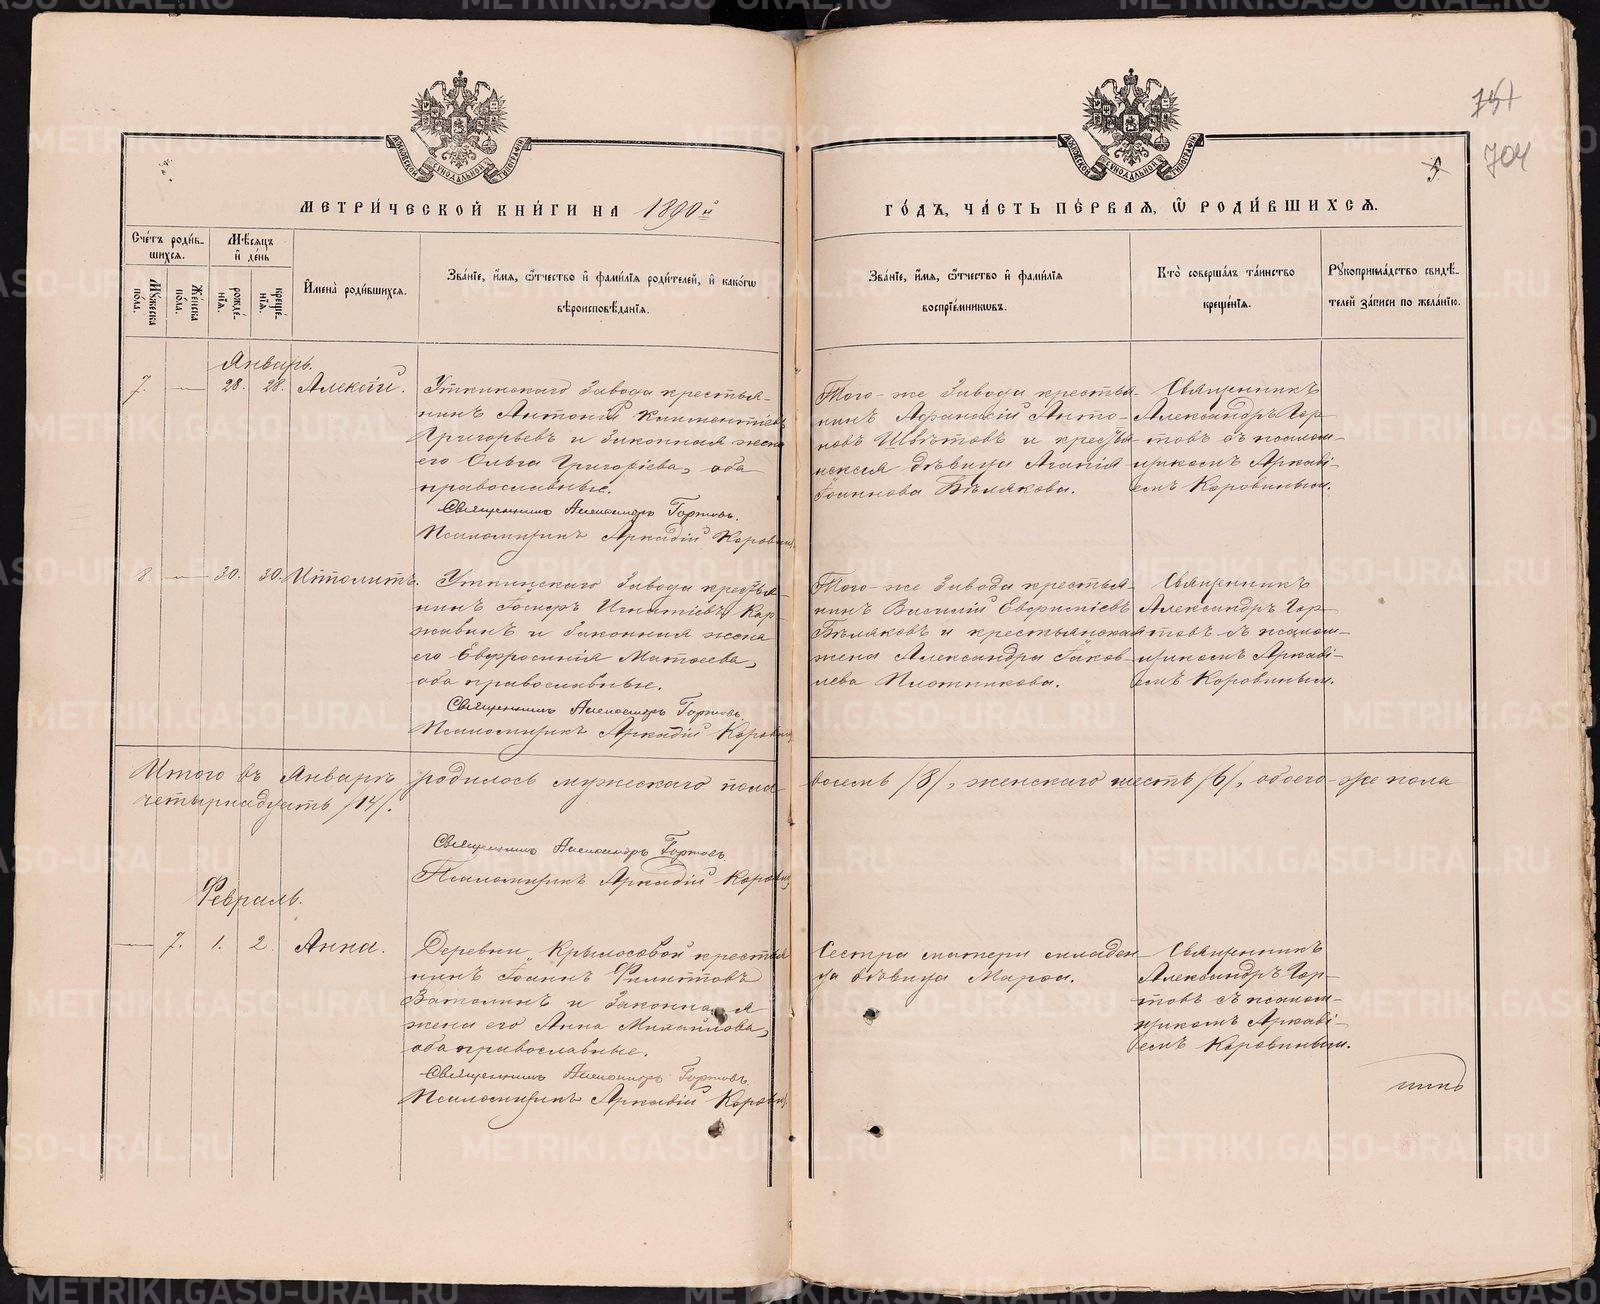 751
704
5.
МЕТРИЧЕСКОЙ КНИГИ НА 1890й
ГОДЪ, ЧАСТЬ ПЕРВАЯ, Ѡ РОДИВШИХСЯ.
Счетъ родив-
шихся.
Мужеска пола.
Женска пола.
Мѣсяцъ и день
рожде-
нія.
креще-
нія.
Имена родившихся.
Званіе, имя, ѿчество и фамилія родителей, и какогѡ
вѣроисповѣданія.
Званіе, имя, ѿчество и фамилія
воспріемниковъ.
Кто совершалъ таинство
крещенія.
Рукоприкладство свидѣ-
телей записи по желанію.
Январь.
7. — 28. 28. Алексій.
Уткинскаго завода крестья-
нинъ Антоній Климентіевъ
Григорьевъ и законная жена
его Ольга Григоріева, оба
православные.
Священникъ Александръ Гортовъ.
Псаломщикъ Аркадій Коровинъ.
Того-же завода крестья-
нинъ Афанасій Анто-
новъ Швѣтовъ и крестья-
нская дѣвица Агапія
Іоаннова Бѣлякова.
Священникъ
Александръ Гор-
товъ съ псалом-
щикомъ Аркаді-
емъ Коровинымъ.
8. — 30. 30. Ипполитъ.
Уткинскаго завода крестья-
нинъ Игнатіевъ Кор-
жавинъ и законная жена
его Евфросинія Матѳеева,
оба православные.
Священникъ Александръ Гортовъ.
Псаломщикъ Аркадій Коровинъ.
Того-же завода крестья-
нинъ Василій Евфиміевъ
Бѣляковъ и крестьянская
жена Александра Іаков-
лева Плотникова.
Священникъ
Александръ Гор-
товъ съ псалом-
щикомъ Аркаді-
емъ Коровинымъ.
Итого въ Январѣ родилось мужескаго пола восемь /8/, женскаго шесть /6/, обоего-же пола
четырнадцать /14/.
Священникъ Александръ Гортовъ.
Псаломщикъ Аркадій Коровинъ
Февраль.
— 7. 1. 2. Анна.
Деревни Крылосовой крестья
нинъ Іоаннъ Филипповъ
Ватолинъ и законная
жена его Анна Михайлова,
оба православные.
Священникъ Александръ Гортовъ.
Псаломщикъ Аркадій Коровинъ.
Сестра матери младен
ца дѣвица Марѳа.
Священникъ
Александръ Гор-
товъ съ псалом-
щикомъ Аркаді-
емъ Коровинымъ.
METRIKI.GASO-URAL.RU